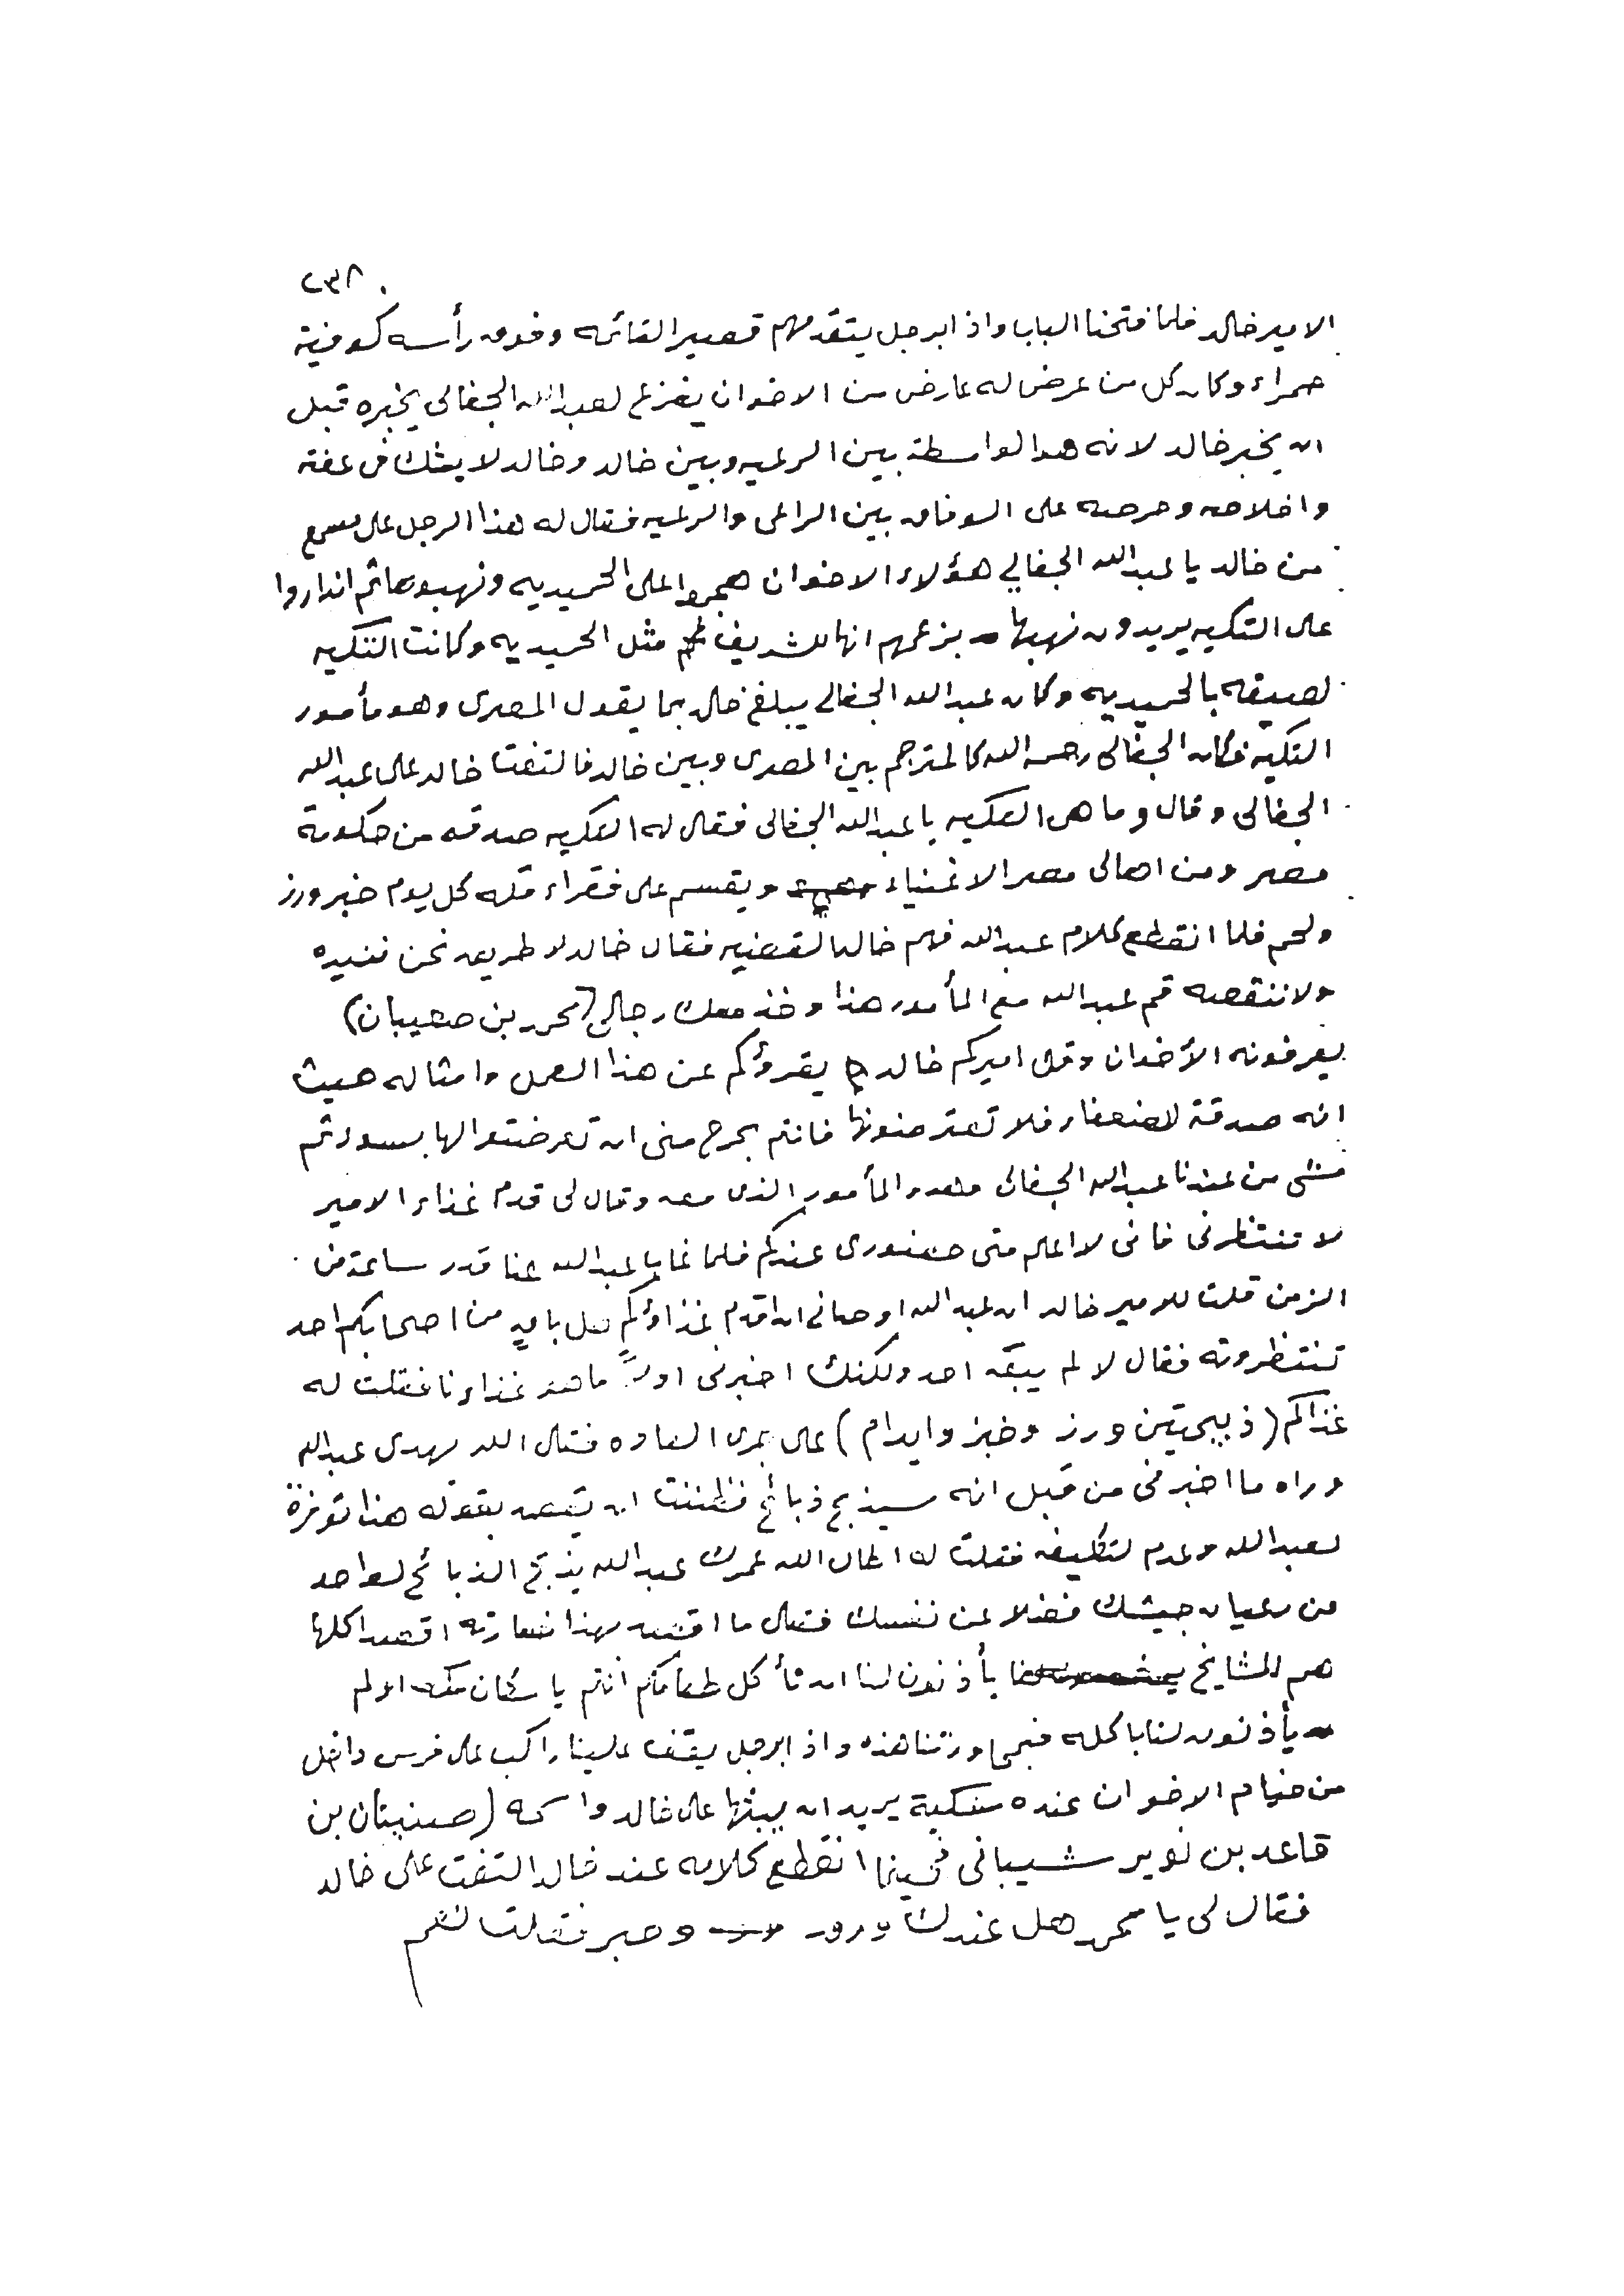 ٢٣٨
الامير خالد فلما فتحنا الباب واذا برجل يتقدمهم قصير القائمه وفوق رأسه كوفية
حمراء وكان كل من عرض له عارض من الاخوان يفزع لعبدالله الجفالى يخبره قبل
ان يخبر خالد لانه هو الواسطة بين الرعيه وبين خالد وخالد لا يشك فى عفته
واخلاصه وحرصه على الوفاق بين الراعى والرعيه فقال له هذا الرجل على مسمع
من خالد يا عبدالله الجفالي هؤلاء الاخوان هجموا على الحميديه ونهبوها ثم انداروا
على التكيه يريدون نهبها بزعمهم انها للشريف مثل الحميديه وكانت التكيه
لصيقه بالحميديه وكان عبدالله الجفالى يبلغ خالد بما يقول المصرى وهو مأمور
التكيه فكان الجفالى رحمه الله كالمترجم بين المصرى وبين خالد فالتفت خالد على عبدالله
الجفالى وقال وما هى التكيه يا عبدالله الجفالى فقال له التكيه صدقه من حكومة
مصر ومن اهالى مصر الاغنياء ويقسم على فقراء مكه كل يوم خبز ورز
ولحم فلما انقطع كلام عبدالله فهم خالد القضيه فقال خالد لا طريق نحن نزيده
ولا ننقصه قم عبدالله مع المأمور هذا وخذ معك رجالى (محمد بن صعيبان)
يعرفونه الأخوان وقل اميركم خالد يقرؤكم عن هذا العمل وامثاله حيث
انه صدقة للضعفاء فلا تعترضونها فانتم بحرج منى ان تعرضتوا لها بسوء ثم
مشى من عندنا عبدالله الجفالى هو والمأمور الذى معه وقال لى قدم غذاء الامير
لا تنتظرنى فانى لا اعلم متى حضورى عندكم فلما غاب عبدالله عنا قدر ساعة من
الزمن قلت للامير خالد ان عبدالله اوصانى ان اقدم غذاؤكم هل باقي من اصحابكم احد
تنتظرونه فقال لا لم يبقه احد ولكنك اخبرنى اولاً ما هو غذاءنا فقلت له
غذاكم (ذبيحتين ورز وخبز وايدام) على مجرى العاده فقال الله يهدى عبدالله
وراه ما اخبرنى من قبل انه سيذبح ذبائح فظننت ان يقصد بقوله هذا توفرة
لعبدالله وعدم لتكليفه فقلت له اطال الله عمرك عبدالله يذبح الذبائح لواحد
من رعيان جيشك فضلا عن نفسك فقال ما اقصد بهذا خسارته اقصد اكلها
هم المشايخ يأذنون لنا ان نأكل طعامكم انتم يا سكان مكه او لم
يأذنون لنا باكله فبمحاورتنا هذه واذا برجل يقف علينا راكب على فرس داخل
من خيام الاخوان عنده شكية يريد ان يبثها على خالد واسمه (صنيتان بن
قاعد بن نوير شيبانى فحينما انقطع كلامه عند خالد التفت على خالد
فقال لى يا محمد هل عندك ورور وخبر فقلت نعم